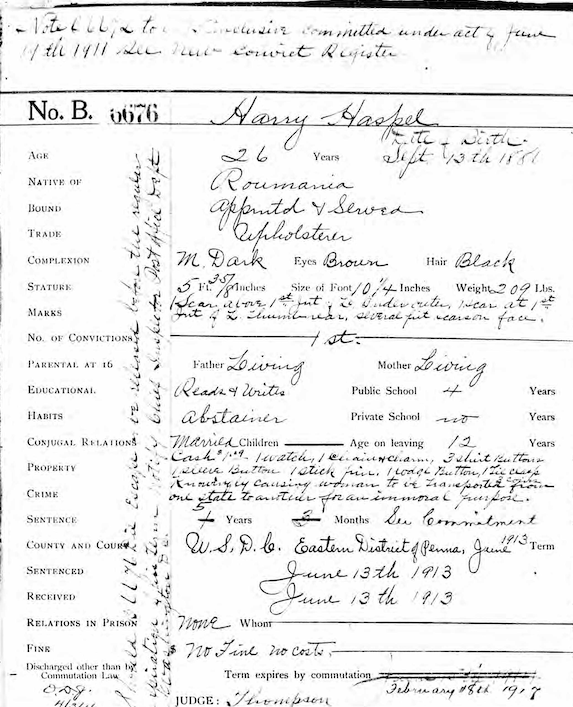 Note committed under act of June
19th 1911 See New Convict Register
No. B. 6676 Harry Haspel
Date of Birth
Sept 13th 1881
AGE 26 Years
NATIVE OF Roumania
BOUND Apprntd & Served
TRADE Upholsterer
COMPLEXION M. Dark Eyes Brown Hair Black
STATURE 5 Ft. Inches Size of Foot 10 1/4 Inches Weight 209 Lbs.
MARKS 1 Scar above 1st jnt of L. outer, 1 scar at 1st
jnt of L. Thumb rear, several pit scars on face.
NO. OF CONVICTIONS 1st.
PARENTAL AT 16 Father Living Mother Living
EDUCATIONAL Reads & Writes Public School 4 Years
HABITS Abstainer Private School no Years
CONJUGAL RELATIONS Married Children Age on leaving 12 Years
PROPERTY Cash 1 watch, 1 chain & charm, 3 shirt Buttons
1 sleeve Button 1 stick pin, 1 Lodge Button, 1 Tie clasp
CRIME Knowingly causing woman to be transported from
one state to another for an immoral purpose.
SENTENCE Years 3 Months See Commitment
COUNTY AND COURT U.S.D.C. Eastern District of Penna, June 1913 Term
SENTENCED June 13th 1913
RECEIVED June 13th 1913
RELATIONS IN PRISON None Whom
FINE $ No Fine no costs.
Discharged other than by
Commutation Law
Term expires by commutation
February 8th 1917
JUDGE: Thompson
Should escape or be released before the regular
expiration of his term notify Chief Inspector Post Office Dept
Washington D.C.